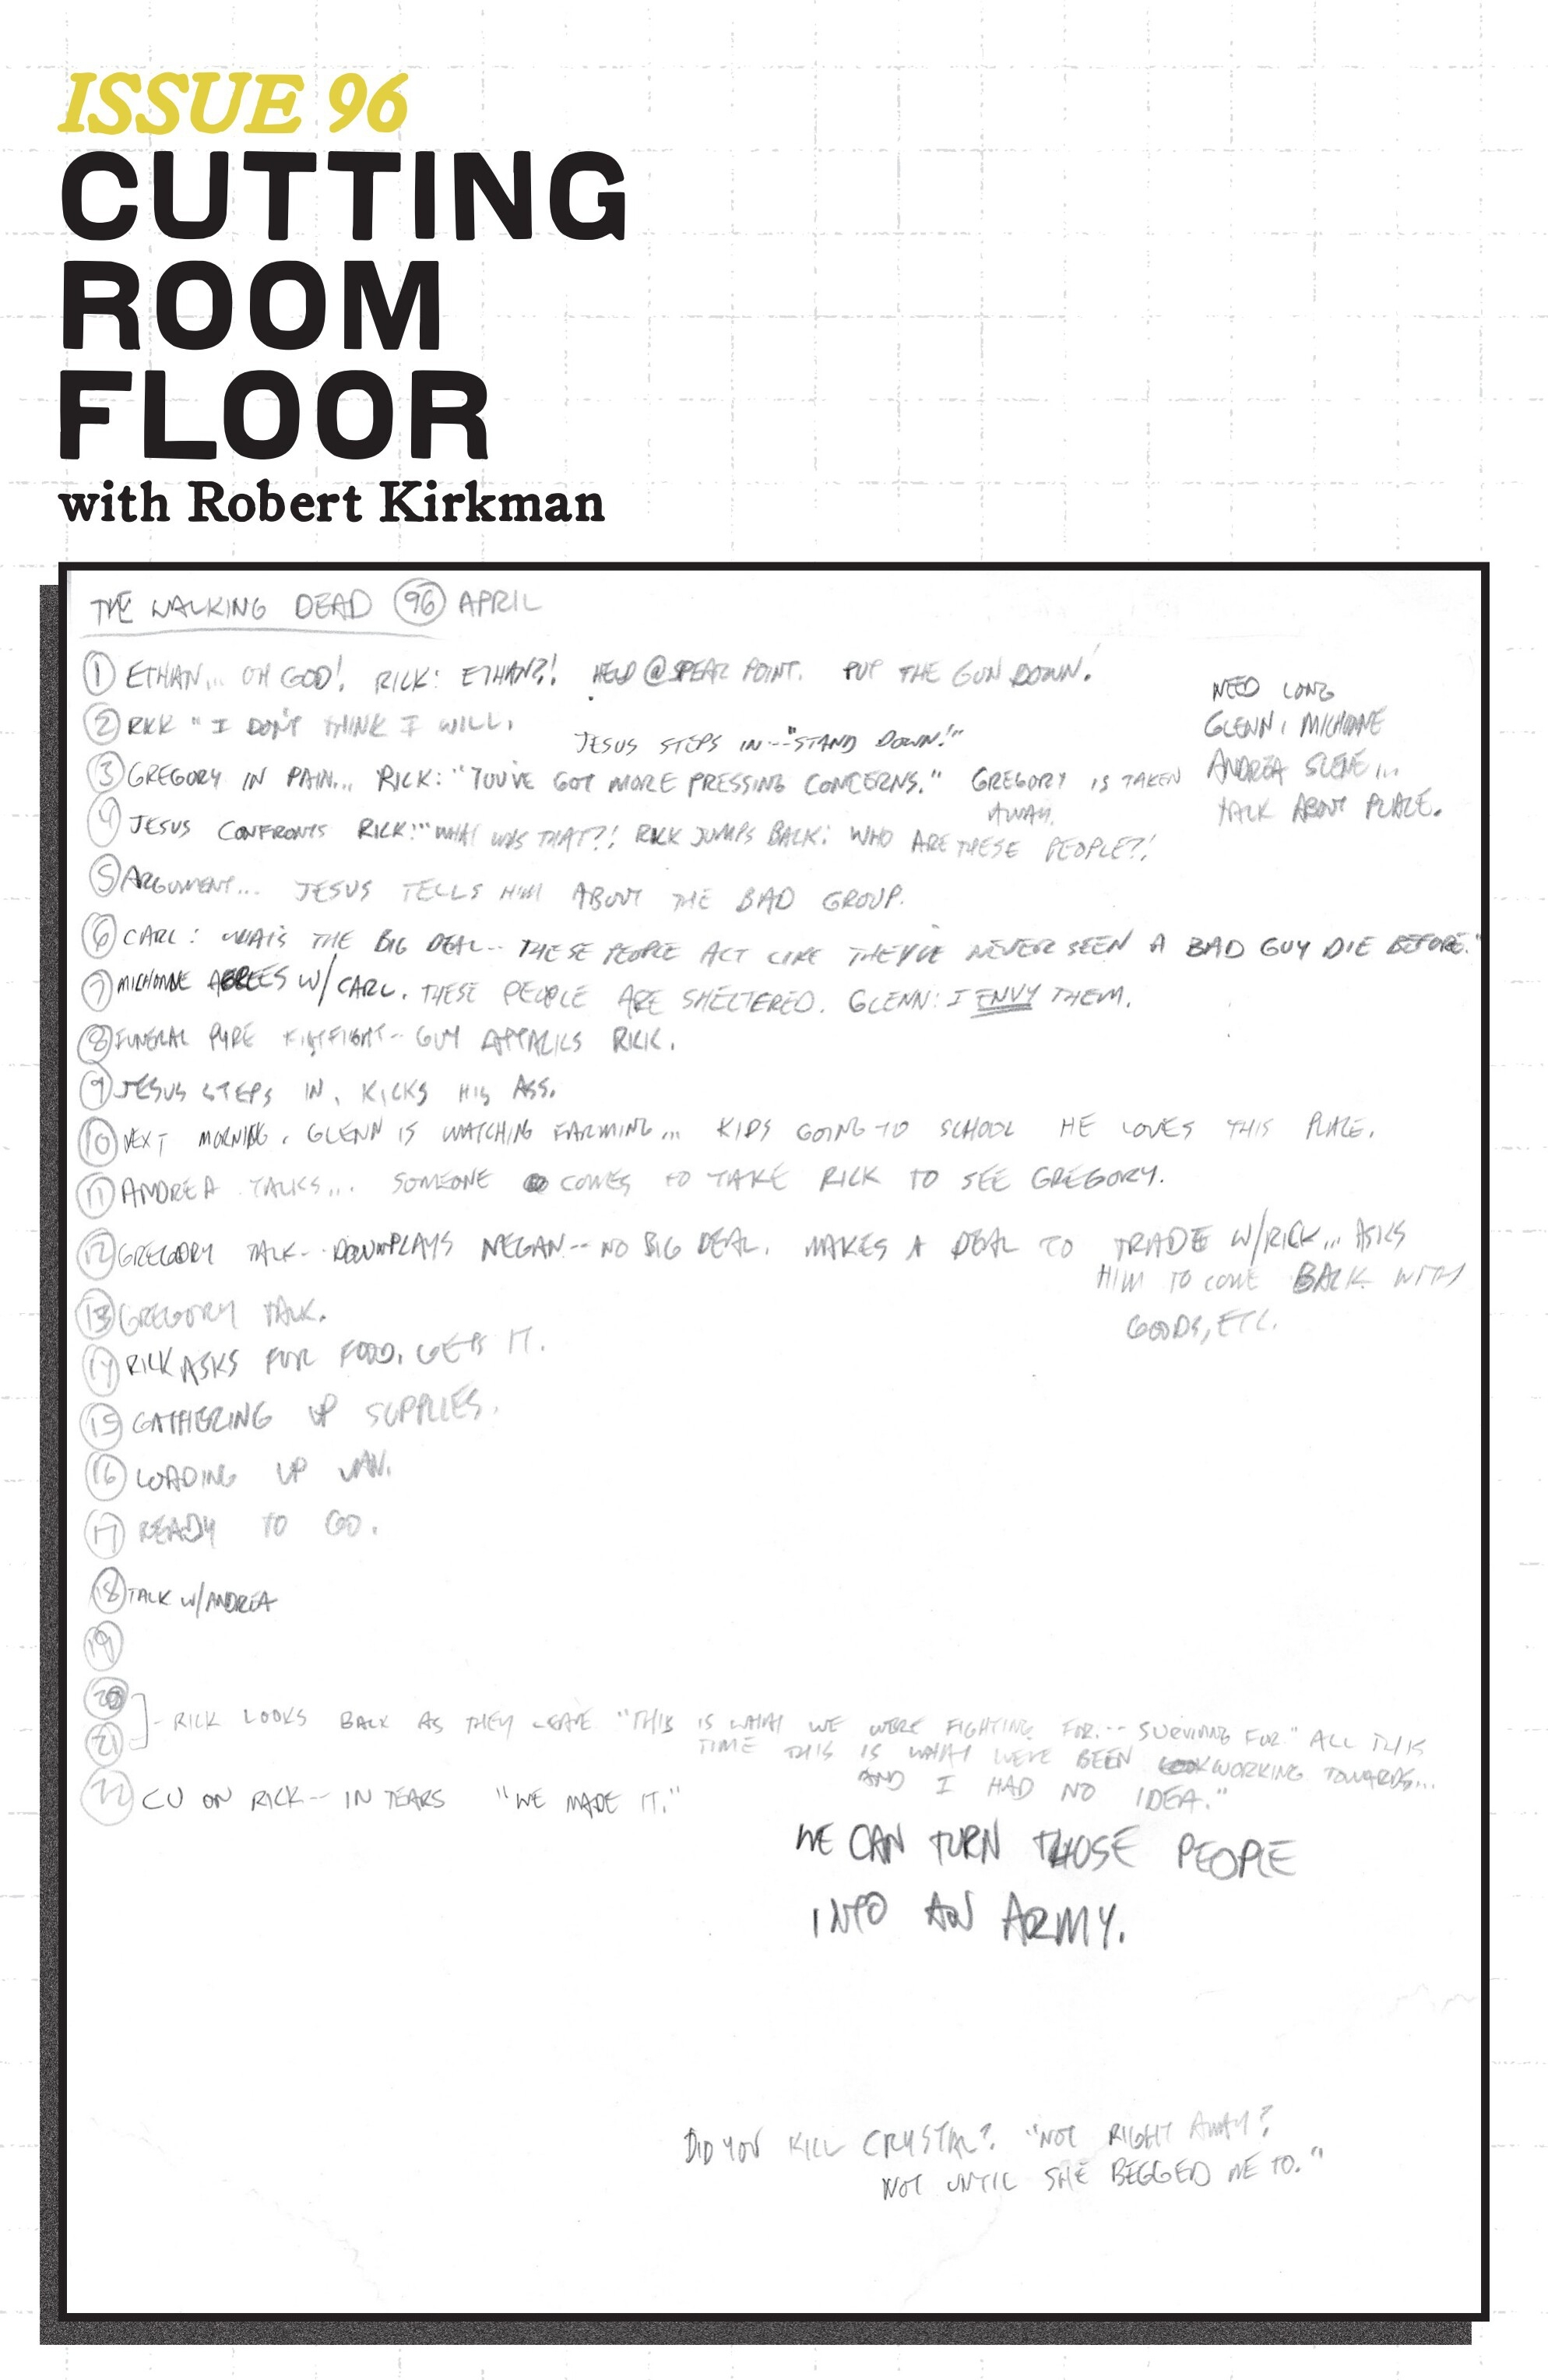 ISSUE 96
CUTTING
ROOM
FLOOR
with Robert Kirkman
THE WALKING DEAD 96 APRIL
1 ETHAN... OH GOD! RICK: ETHAN?! HELD @ SPEAR POINT. PUT THE GUN DOWN!
2 RICK "I DON'T THINK I WILL.
JESUS STEPS IN--"STAND DOWN!"
3 GREGORY IN PAIN... RICK: "YOU'VE GOT MORE PRESSING CONCERNS." GREGORY IS TAKEN
AWAY.
NEED LONG
GLENN, MICHONNE
ANDREA SCENE...
TALK ABOUT PLACE.
4 JESUS CONFRONTS RICK: "WHAT WAS THAT?! RICK JUMPS BACK: WHO ARE THESE PEOPLE?!
5 ARGUMENT... JESUS TELLS HIM ABOUT THE BAD GROUP.
6 CARL: WHAT'S THE BIG DEAL-- THESE PEOPLE ACT LIKE THEY'VE NEVER SEEN A BAD GUY DIE BEFORE."
7 MICHONNE AGREES W/ CARL. THESE PEOPLE ARE SHELTERED. GLENN: I ENVY THEM.
8 FUNERAL PYRE FISTFIGHT-- GUY ATTACKS RICK.
9 JESUS STEPS IN, KICKS HIS ASS.
10 NEXT MORNING, GLENN IS WATCHING FARMING... KIDS GOING TO SCHOOL HE LOVES THIS PLACE.
11 ANDREA TALKS... SOMEONE COMES TO TAKE RICK TO SEE GREGORY.
12 GREGORY TALK-- DOWNPLAYS NEGAN-- NO BIG DEAL. MAKES A DEAL TO TRADE W/RICK... ASKS
HIM TO COME BACK WITH
GOODS, ETC.
13 GREGORY TALK.
14 RICK ASKS FOR FOOD. GETS IT.
15 GATHERING UP SUPPLIES.
16 LOADING UP VAN.
17 READY TO GO.
18 TALK W/ANDREA
19
20
21 - RICK LOOKS BACK AS THEY LEAVE "THIS IS WHAT WE WERE FIGHTING FOR.-- SURVIVING FOR." ALL THIS
TIME THIS IS WHAT WE'VE BEEN WORKING TOWARDS...
AND I HAD NO IDEA."
22 CU ON RICK-- IN TEARS "WE MADE IT."
WE CAN TURN THOSE PEOPLE
INTO AN ARMY.
DID YOU KILL CRYSTAL? "NOT RIGHT AWAY?
NOT UNTIL SHE BEGGED ME TO."